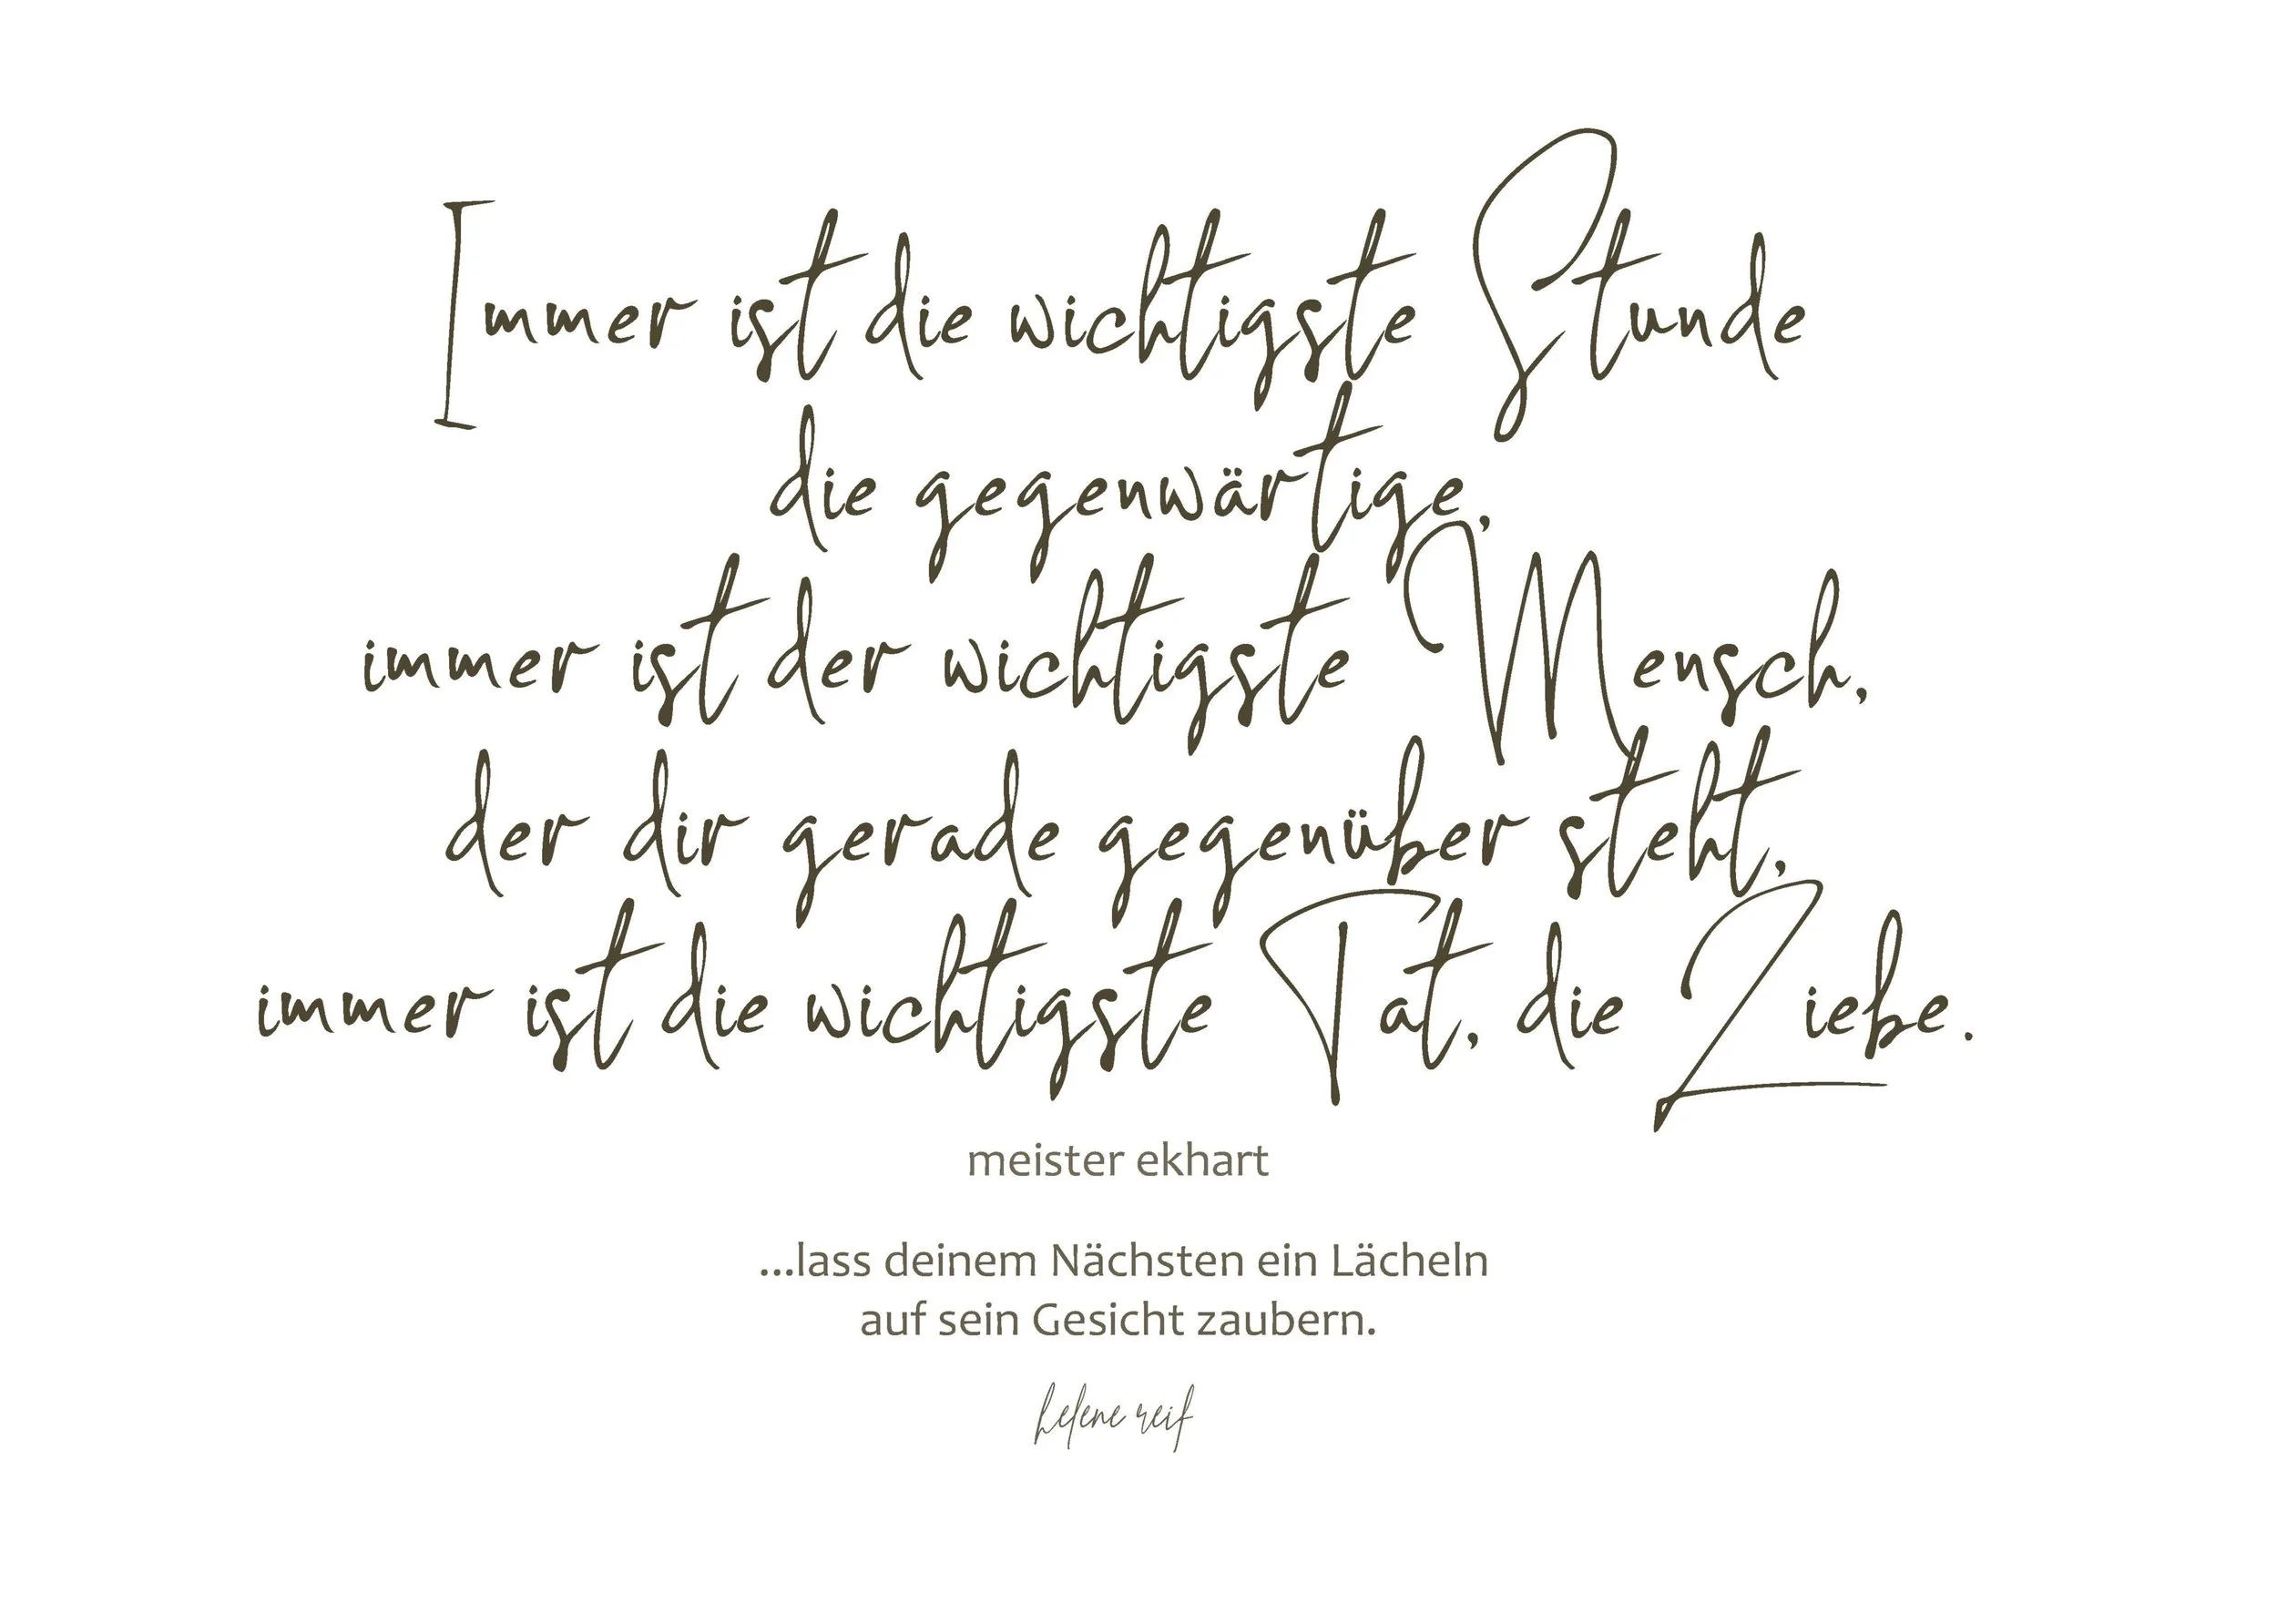 Immer ist die wichtigste Stunde
die gegenwärtige,
immer ist der wichtigste Mensch,
der dir gerade gegenüber steht,
immer ist die wichtigste Tat, die Liebe.
meister ekhart
...lass deinem Nächsten ein Lächeln
auf sein Gesicht zaubern.
helene reif